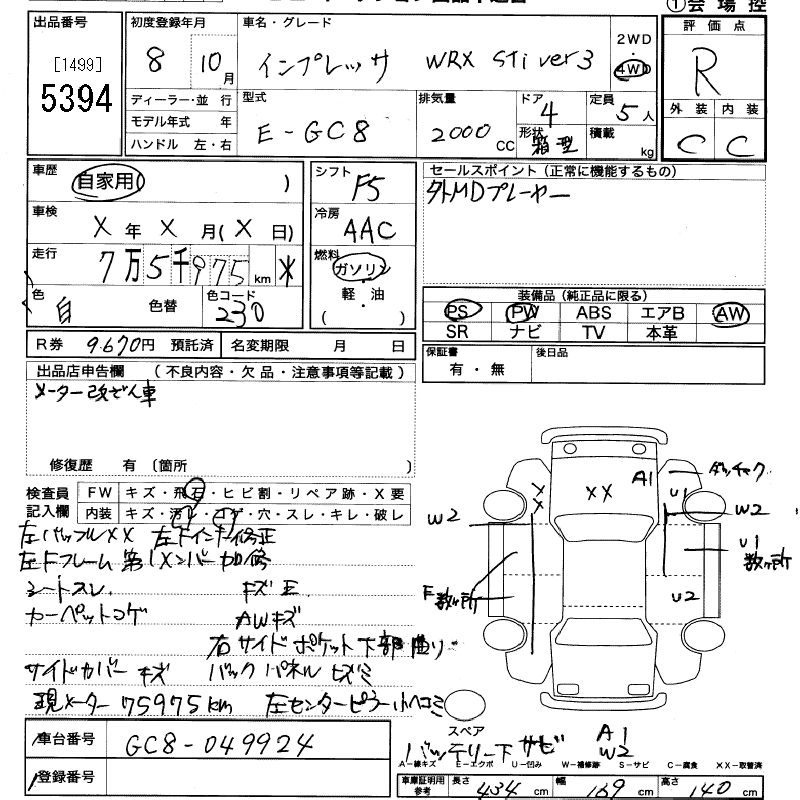 ①会場控
出品番号
[1499]
5394
初度登録年月
8 10月
ディーラー・並行
モデル年式 年
ハンドル 左・右
車名・グレード
インプレッサ WRX STi ver3
2WD
4WD
型式
E-GC8
排気量
2000 CC
ドア 4
形状 箱型
定員 5人
積載 kg
評価点
R
外装 内装
C C
車歴
自家用 )
車検
X年X月(X日)
走行
7万5千975km *
色 白 色替 色コード 230
シフト
F5
冷房
AAC
燃料
ガソリン
軽・油
( )
セールスポイント(正常に機能するもの)
外MDプレーヤー
装備品(純正品に限る)
PS PW ABS エアB AW
SR ナビ TV 本革
R券 9.670円 預託済 名変期限 月 日
保証書 有・無 後日品
出品店申告欄 (不良内容・欠品・注意事項等記載)
メーター改ざん車
修復歴 有 (箇所 )
検査員記入欄
FW キズ・飛石・ヒビ割・リペア跡・X要
内装 キズ・汚レ・コゲ・穴・スレ・キレ・破レ
左バッフルXX 左Fインナー修正
左Fフレーム 第1メンバー 曲修
シートスレ キズ
カーペットコゲ AWキズ
右サイドポケット下部曲り
サイドカバーキズ バックパネルヒズミ
現メーター75975km 左センターピラー小ヘコミ
車台番号 GC8-049924
登録番号
XX
XX
A1
U1
W2
W2
U1
数ヶ所
U2
F
数ヶ所
スペア
A1
W2
バッテリー下サビ
A-線キズ E-エクボ U-凹み W-補修跡 S-サビ C-腐食 XX-取替済
車庫証明用参考 長さ 434 cm 幅 169 cm 高さ 140 cm